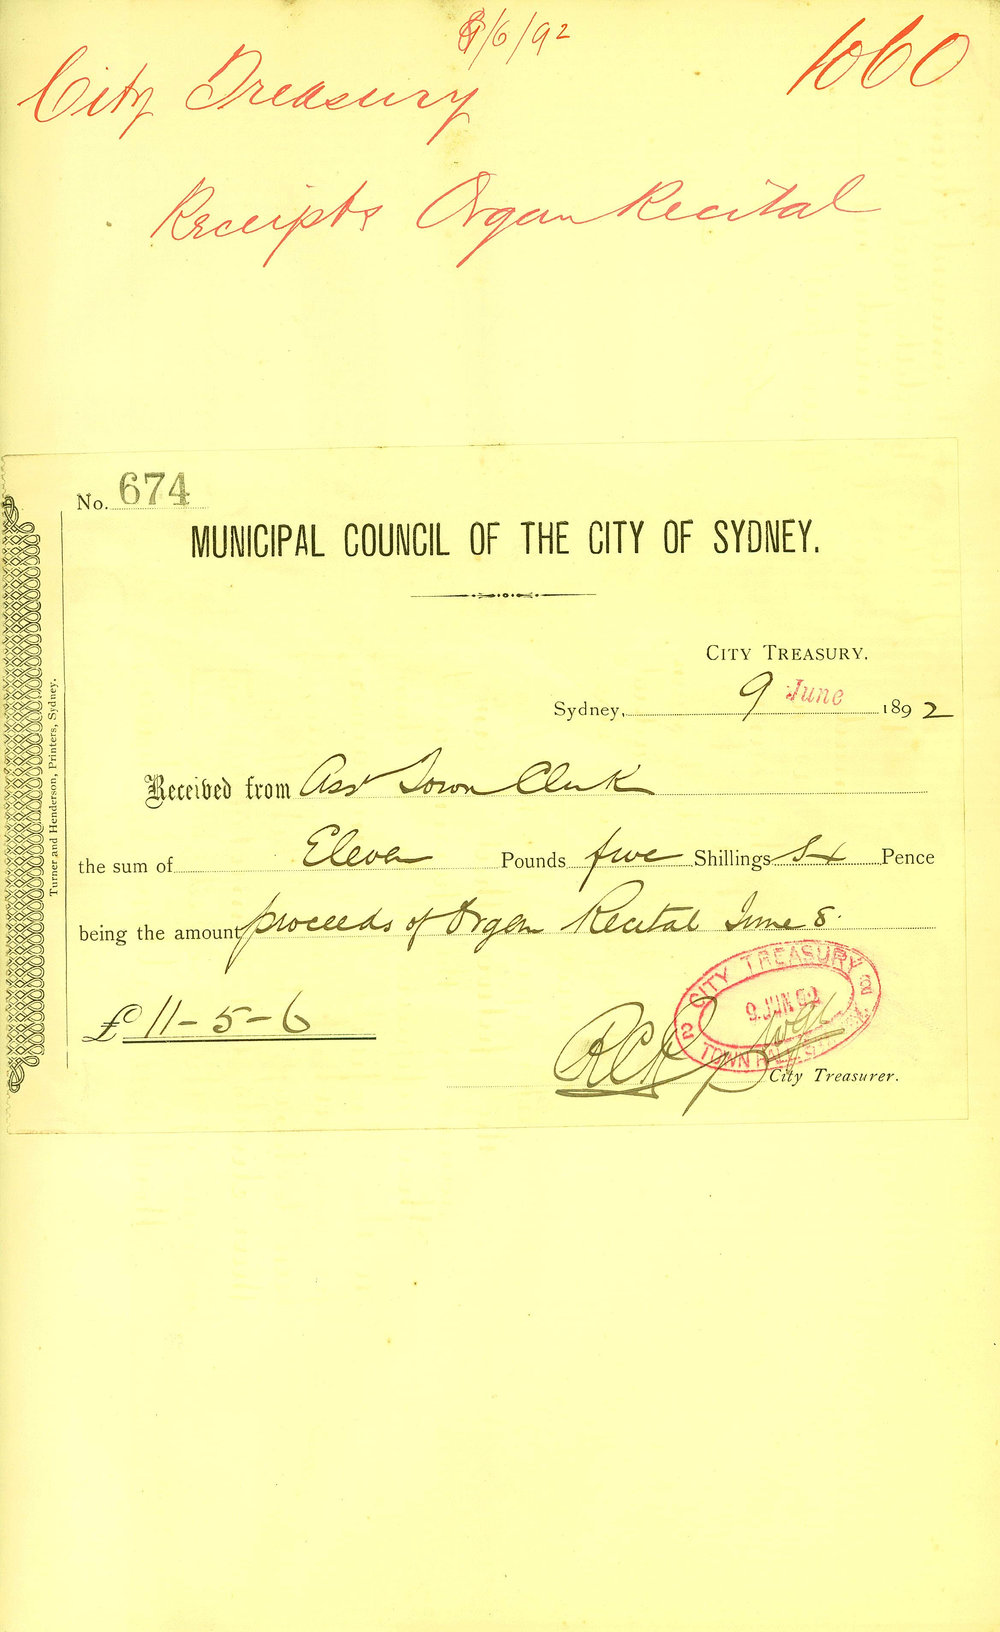 9/6/92
1060
City Treasury
Receipts Organ Recital
No. 674
MUNICIPAL COUNCIL OF THE CITY OF SYDNEY.
CITY TREASURY.
Sydney, 9 June 1892
Received from Asst Town Clerk
the sum of Eleven Pounds five Shillings Six Pence
being the amount proceeds of Organ Recital June 8.
£ 11-5-6
CITY TREASURY
9 JUN 92
TOWN HALL
City Treasurer.
Turner and Henderson, Printers, Sydney.